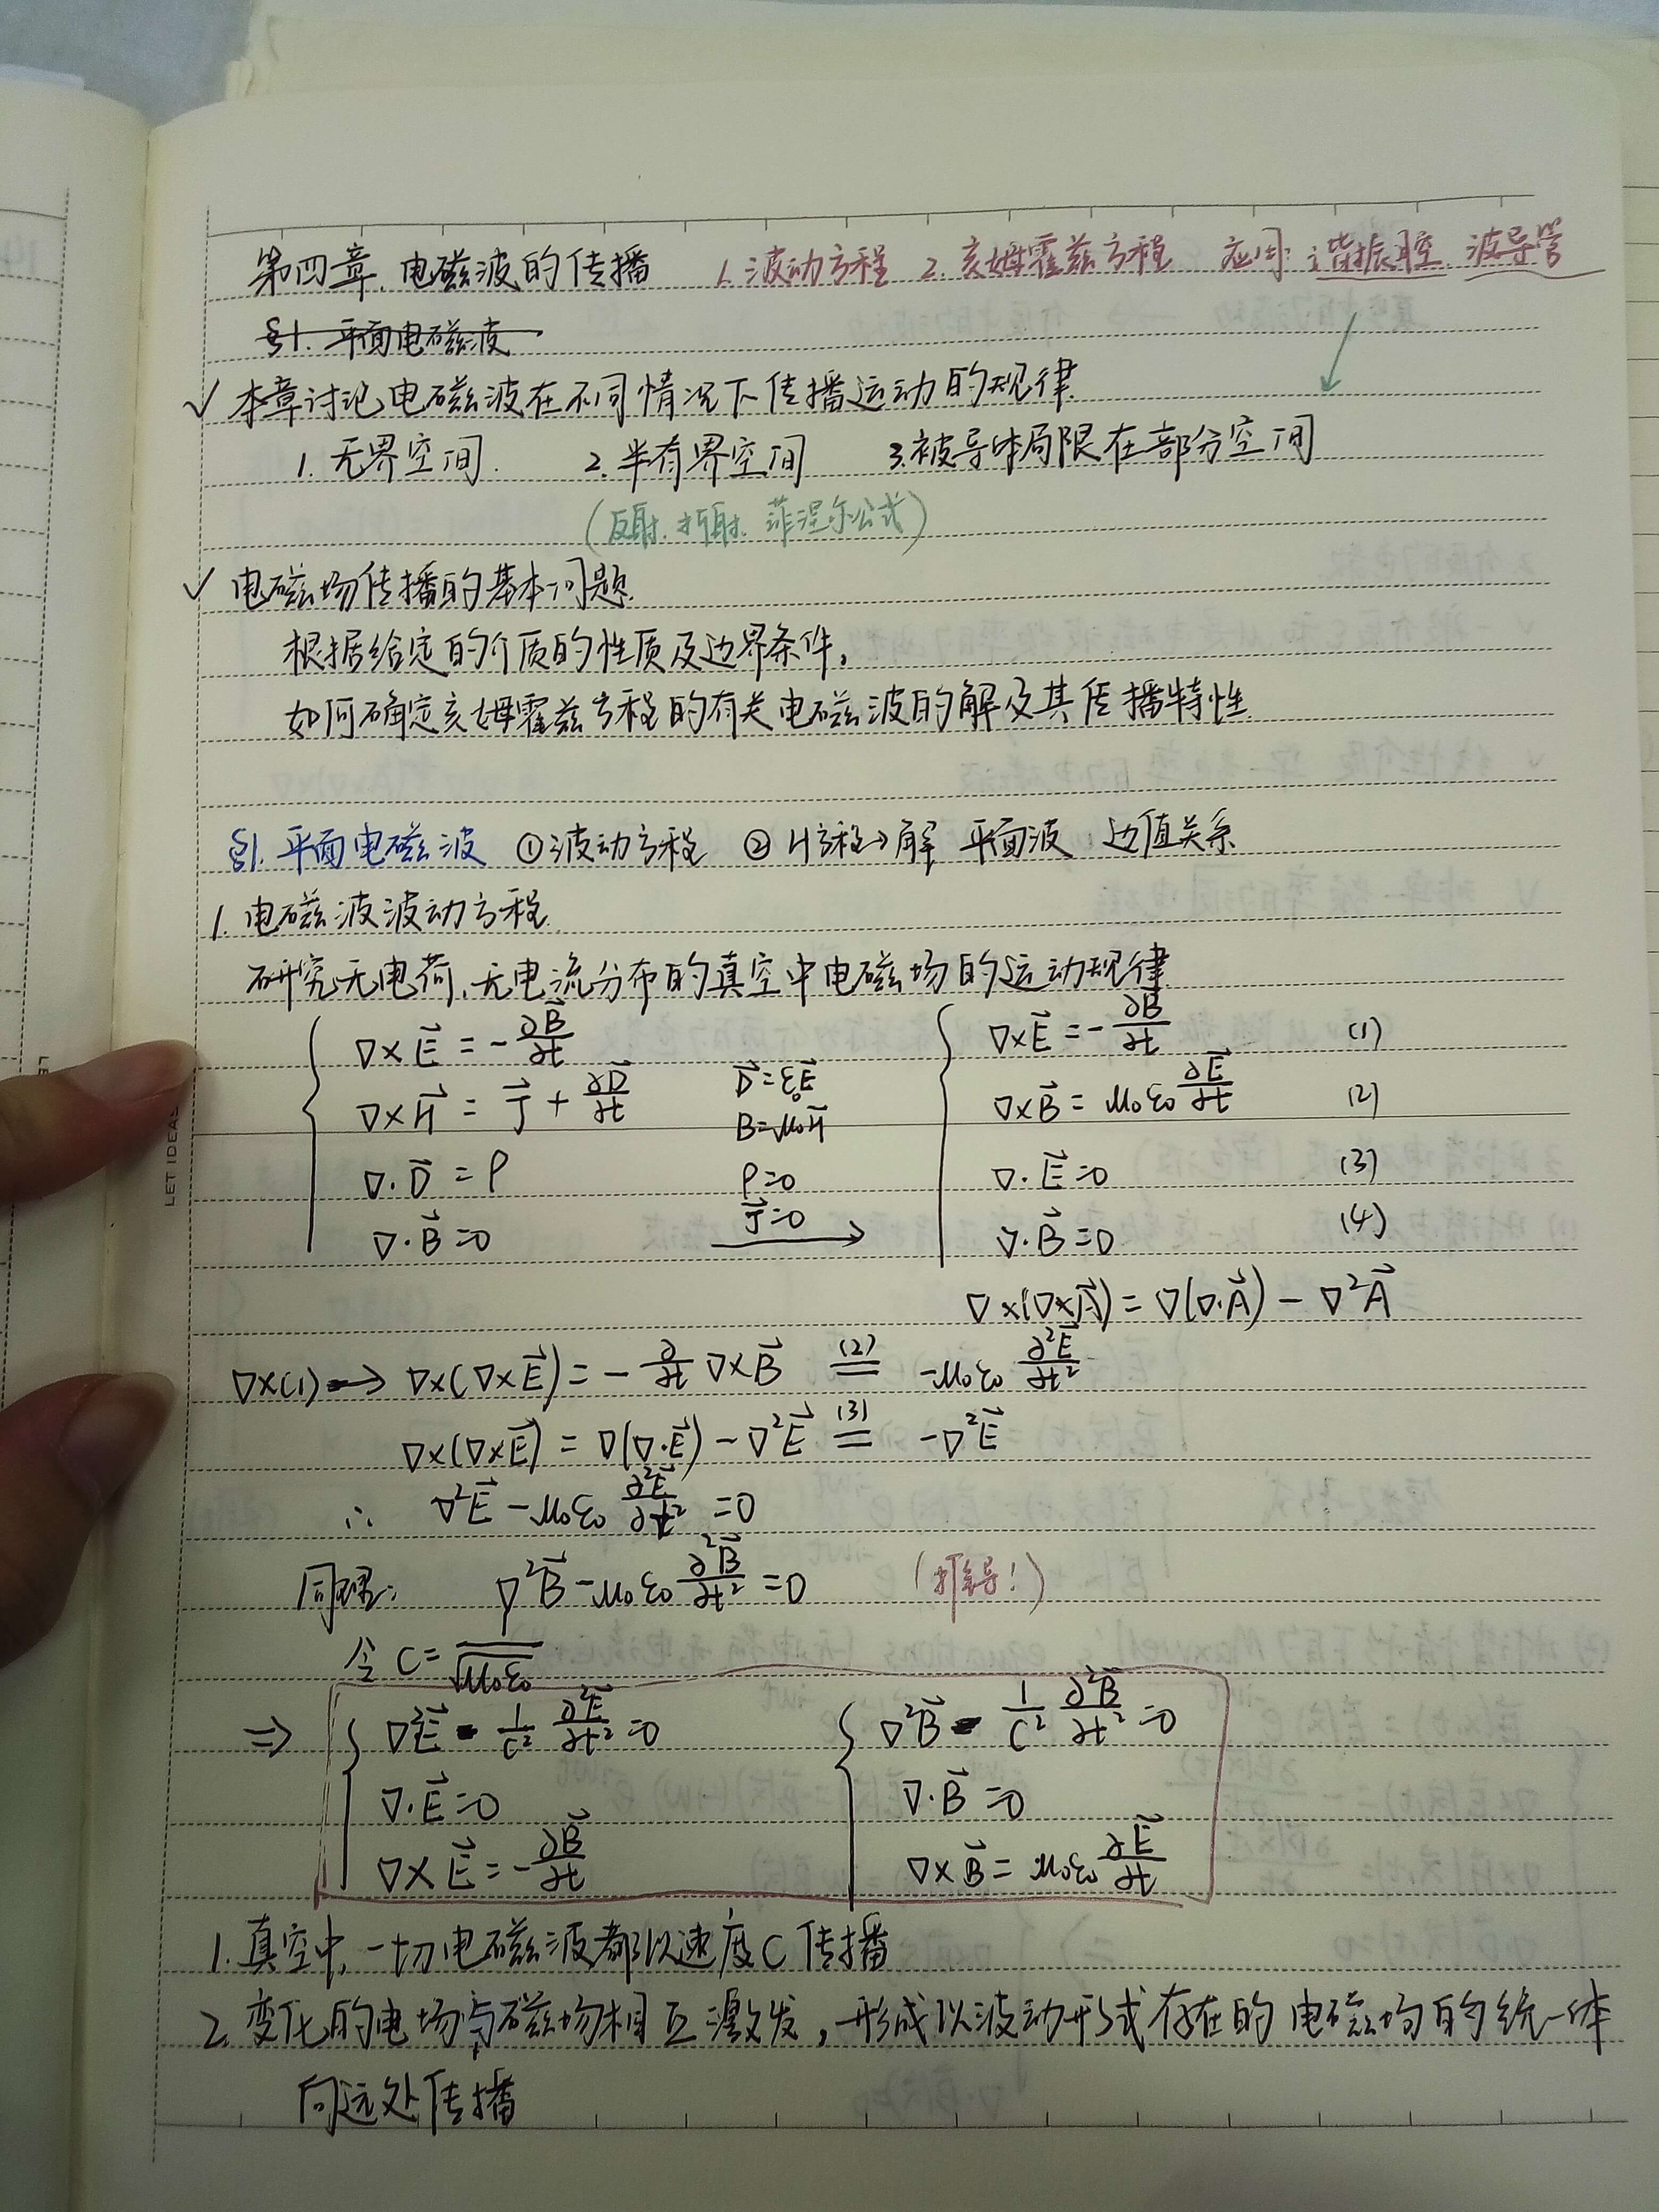 第四章. 电磁波的传播 1. 波动方程 2. 亥姆霍兹方程 应用: 谐振腔. 波导管
§1. 平面电磁波
✓ 本章讨论电磁波在不同情况下传播运动的规律.
1. 无界空间. 2. 半有界空间 3. 被导体局限在部分空间
(反射. 折射. 菲涅尔公式)
✓ 电磁场传播的基本问题.
根据给定的介质的性质及边界条件,
如何确定亥姆霍兹方程的有关电磁波的解及其传播特性.
§1. 平面电磁波 ①波动方程 ② H方程→解 平面波 边值关系
1. 电磁波波动方程.
研究无电荷, 无电流分布的真空中电磁场的运动规律.
∇×E⃗ = -∂B⃗/∂t ∇×E⃗ = -∂B⃗/∂t (1)
∇×H⃗ = J⃗ + ∂D⃗/∂t D⃗=ε₀E⃗ ∇×B⃗ = μ₀ε₀ ∂E⃗/∂t (2)
B=μ₀H⃗
∇·D⃗ = ρ ρ=0 ∇·E⃗=0 (3)
∇·B⃗=0 J⃗=0 → ∇·B⃗=0 (4)
∇×(∇×A⃗) = ∇(∇·A⃗) - ∇²A⃗
∇×(1) → ∇×(∇×E⃗) = -∂/∂t ∇×B⃗ =(2)= -μ₀ε₀ ∂²E⃗/∂t²
∇×(∇×E⃗) = ∇(∇·E⃗) - ∇²E⃗ =(3)= -∇²E⃗
∴ ∇²E⃗ - μ₀ε₀ ∂²E⃗/∂t² = 0
同理: ∇²B⃗ - μ₀ε₀ ∂²B⃗/∂t² = 0 (推导!)
令 C = 1/√μ₀ε₀
⇒ ∇²E⃗ - 1/C² ∂²E⃗/∂t² = 0 ∇²B⃗ - 1/C² ∂²B⃗/∂t² = 0
∇·E⃗=0 ∇·B⃗=0
∇×E⃗ = -∂B⃗/∂t ∇×B⃗ = μ₀ε₀ ∂E⃗/∂t
1. 真空中, 一切电磁波都以速度C传播
2. 变化的电场与磁场相互激发, 形成以波动形式存在的电磁场的统一体
向远处传播
LET IDEAS